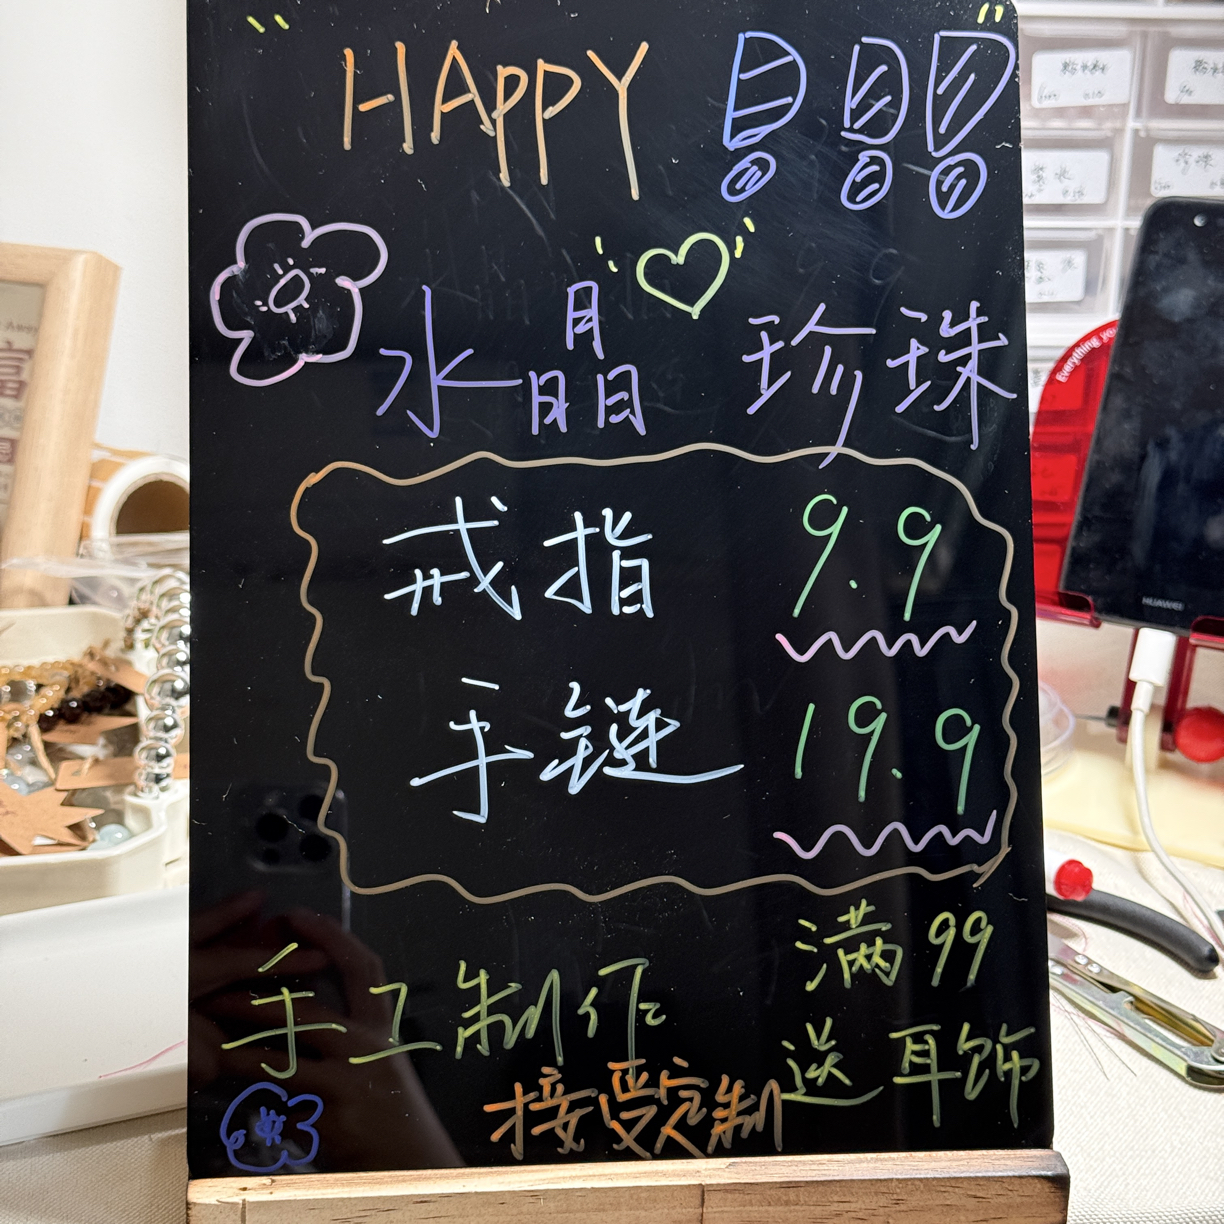 HAPPY
水晶 珍珠
戒指 9.9
手链 19.9
满99
手工制作
送耳饰
接受定制
Everything you
HUAWEI
珍珠
富